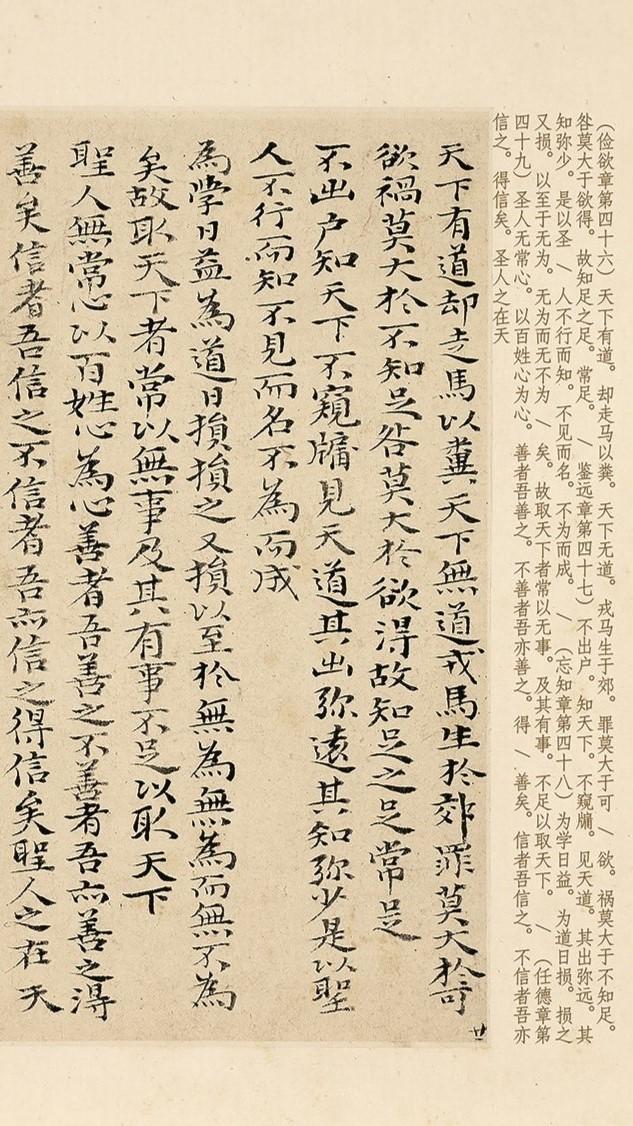 (俭欲章第四十六)天下有道。却走马以粪。天下无道。戎马生于郊。罪莫大于可 / 欲。祸莫大于不知足。
咎莫大于欲得。故知足之足。常足。 / 鉴远章第四十七)不出户。知天下。不窥牖。见天道。其出弥远。其
知弥少。是以圣 / 人不行而知。不见而名。不为而成。 / (忘知章第四十八)为学日益。为道日损。损之
又损。以至于无为。无为而无不为 / 矣。故取天下者常以无事。及其有事。不足以取天下。 / (任德章第
四十九)圣人无常心。以百姓心为心。善者吾善之。不善者吾亦善之。得 / 善矣。信者吾信之。不信者吾亦
信之。得信矣。圣人之在天
天下有道却走馬以糞天下無道戎馬生於郊罪莫大於可
欲禍莫大於不知足咎莫大於欲得故知足之足常足
不出户知天下不窺牖見天道其出弥遠其知弥少是以聖
人不行而知不見而名不為而成
為學日益為道日損損之又損以至於無為無為而無不為
矣故取天下者常以無事及其有事不足以取天下
聖人無常心以百姓心為心善者吾善之不善者吾亦善之得
善矣信者吾信之不信者吾亦信之得信矣聖人之在天
廿